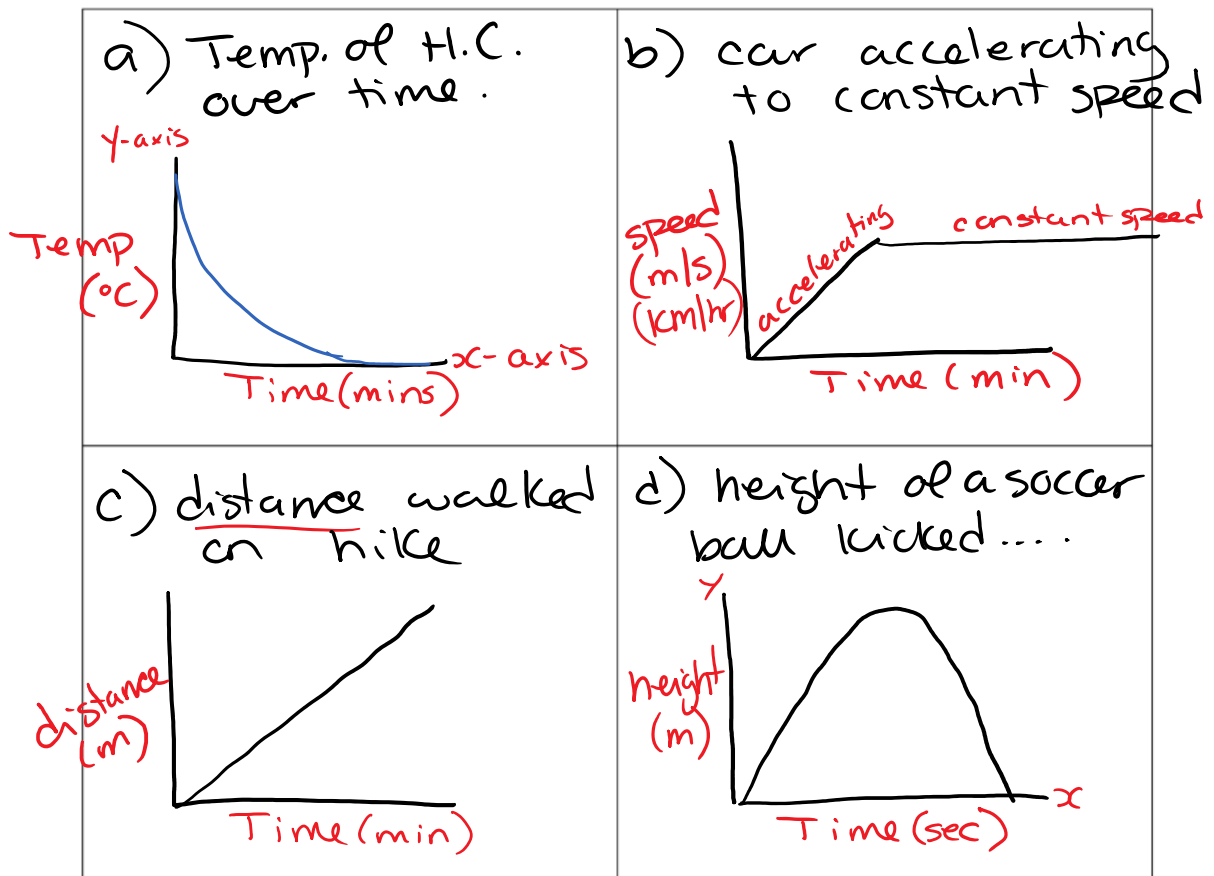 a) Temp. of H.C.
over time.
y-axis
Temp
(°C)
x-axis
Time (mins)
b) car accelerating
to constant speed
speed
(m/s)
(km/hr)
accelerating
constant speed
Time (min)
c) distance walked
on hike
distance
(m)
Time (min)
d) height of a soccer
ball kicked....
y
height
(m)
x
Time (sec)